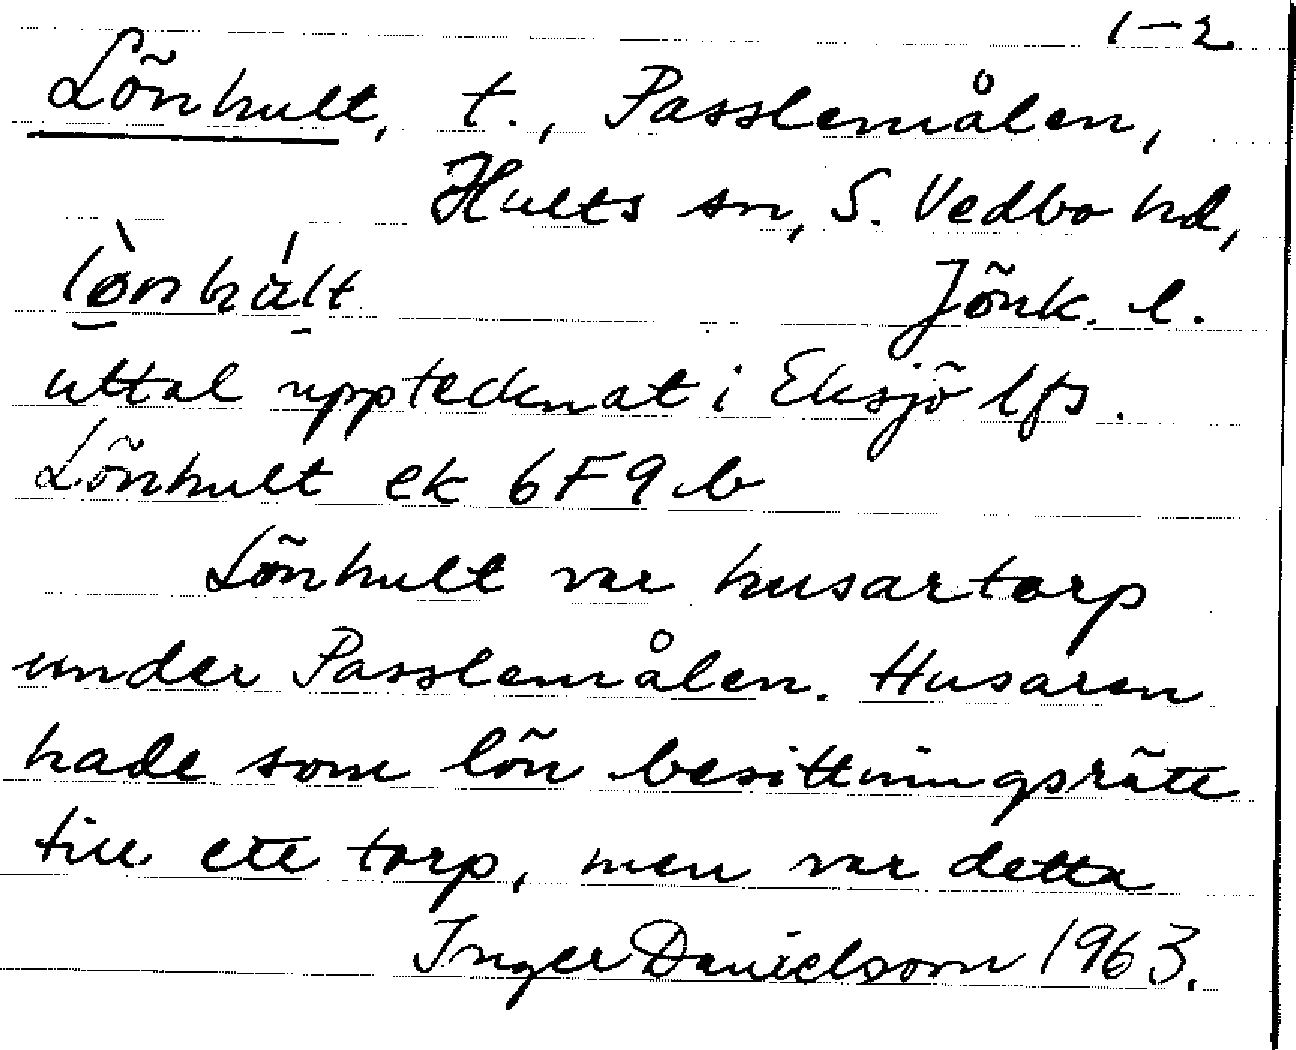 1-2
Lönhult, t., Passlemålen,
Hults sn, S. Vedbo hd,
Jönk. l.
uttal upptecknat i Eksjö lfs.
Lönhult ek 6F9b
Lönhult var husartorp
under Passlemålen. Husaren
hade som lön besittningsrätt
till ett torp, men var detta
Inger Danielsson 1963.